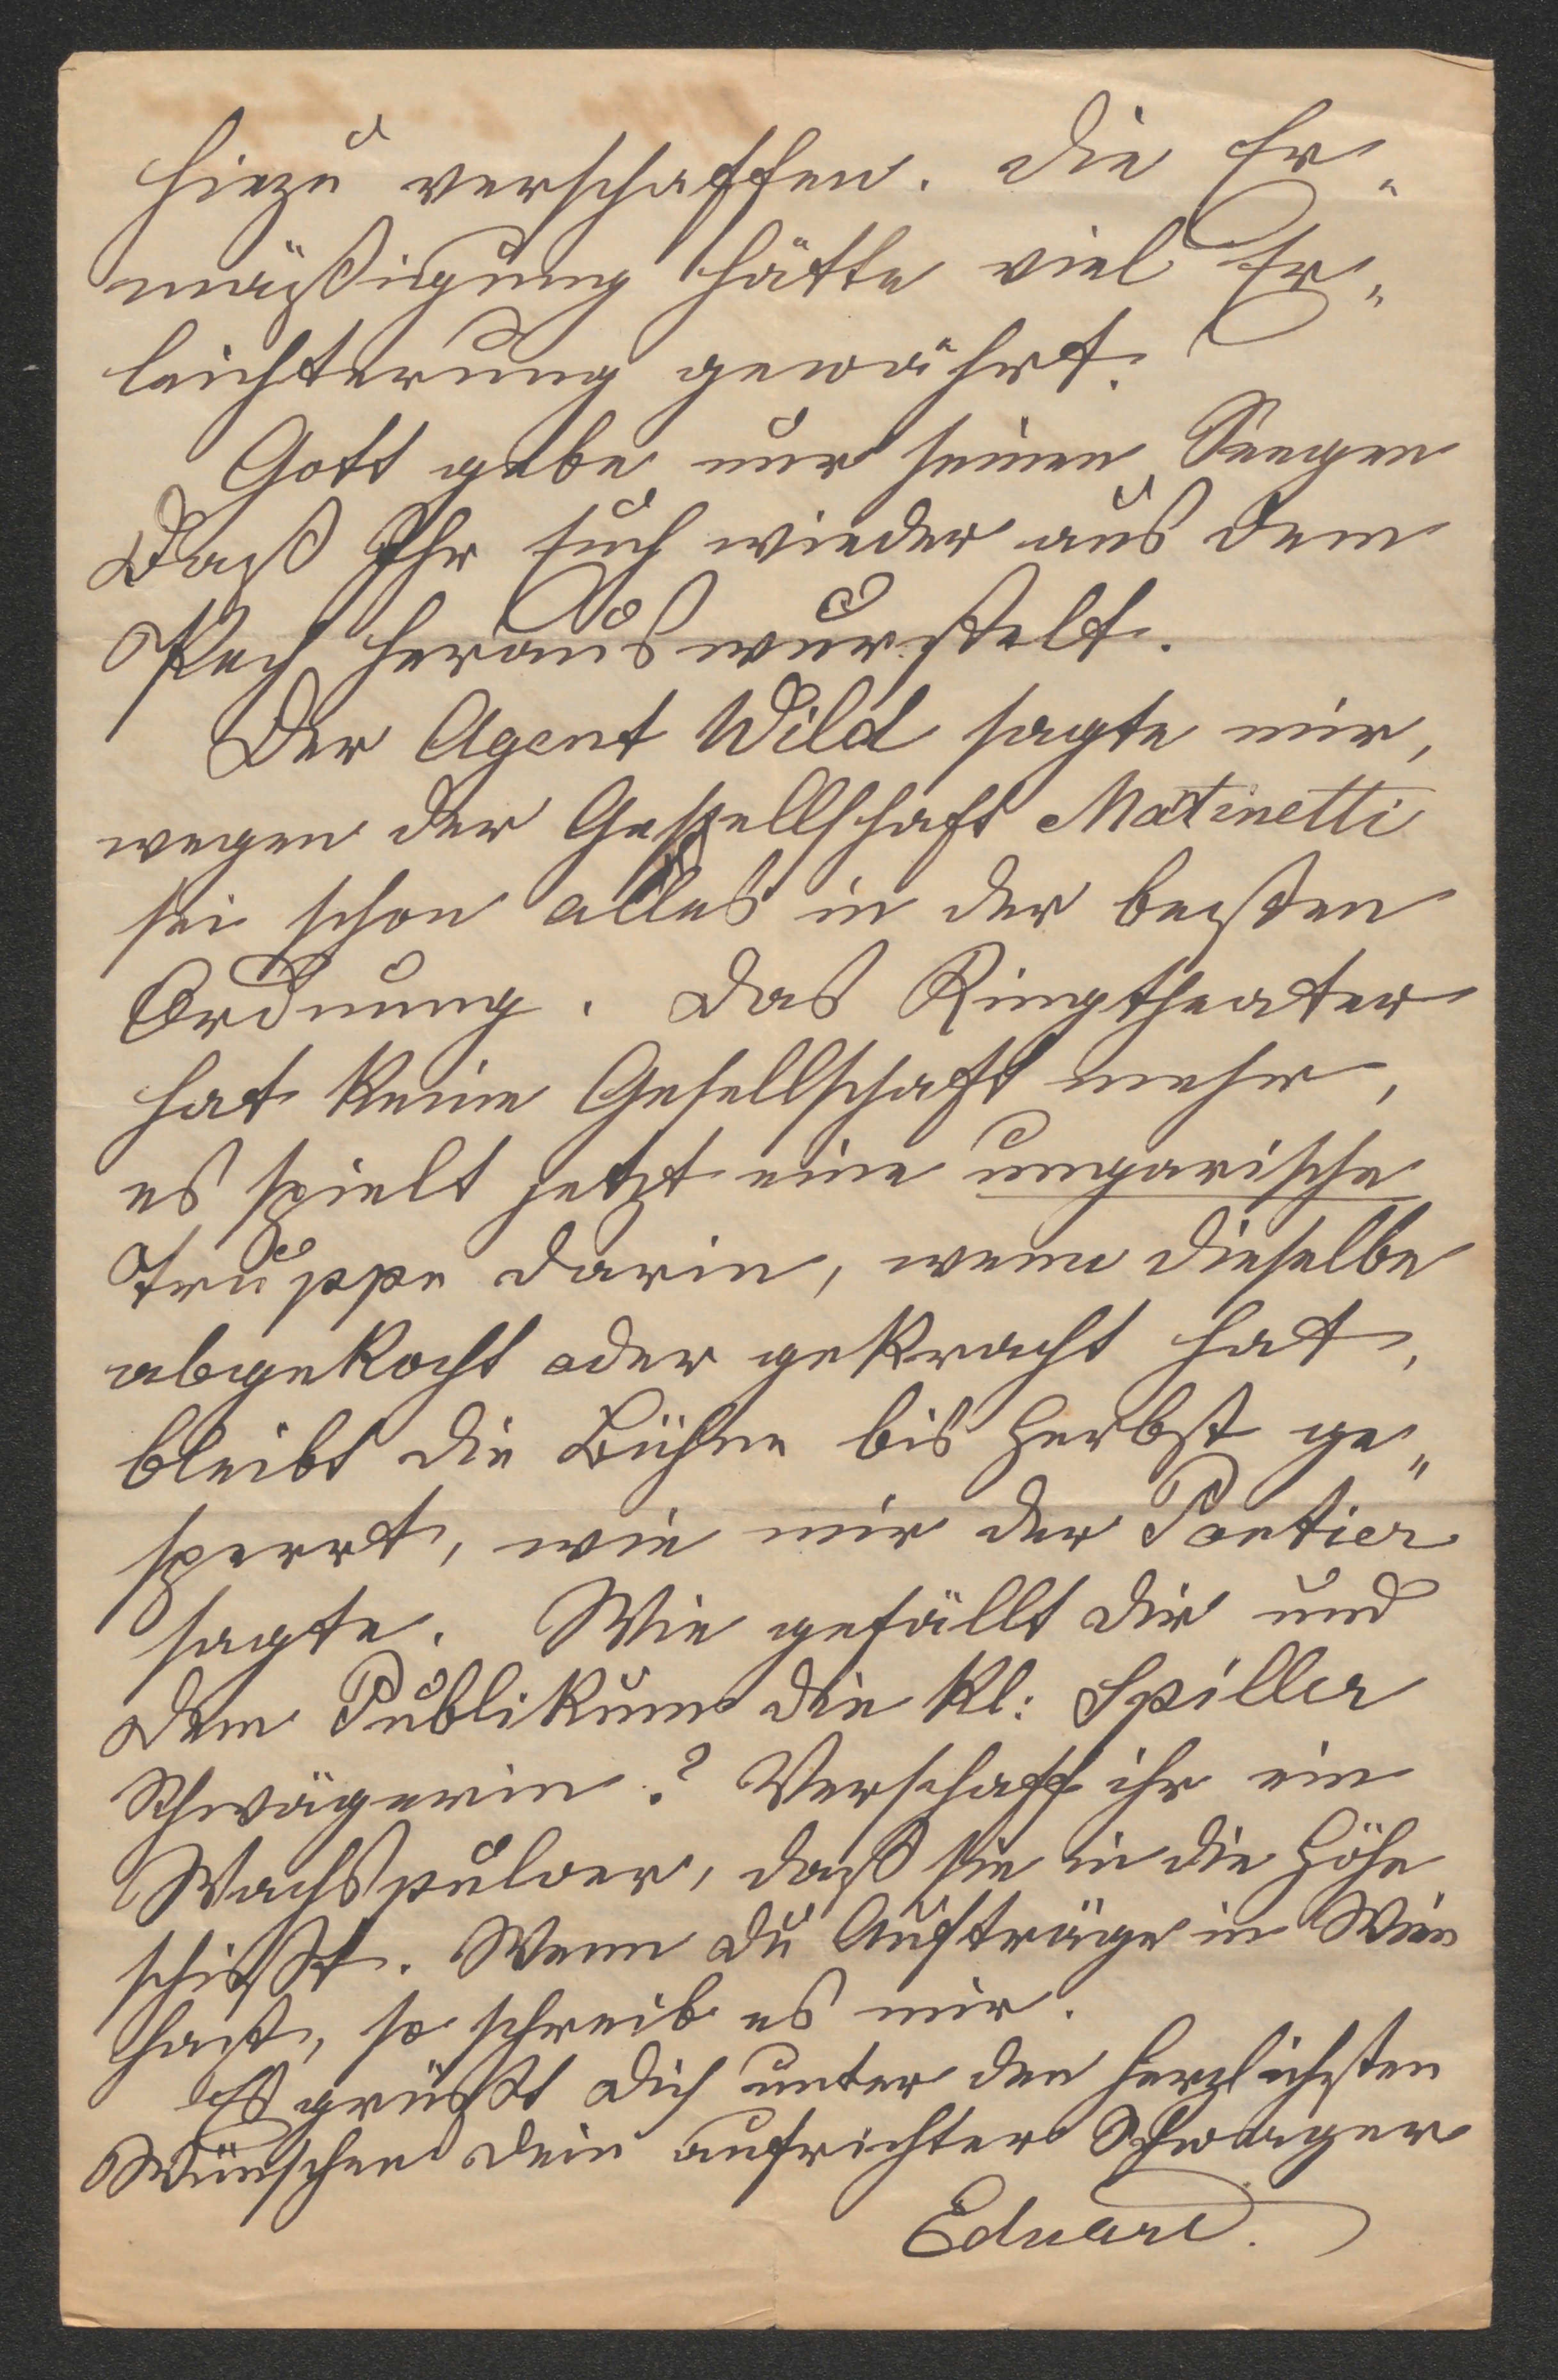 hiezu verschaffen. Die Er-
mäßigung hätte viel Er-
leichterung gewährt.
Gott gebe nur seinen Seegen
Daß Ihr Euch wieder aus dem
Pech herauswurstelt.
Der Agent Wild sagte mir,
wegen der Gesellschaft Matinetti
sei schon alles in der besten
Ordnung. Das Ringtheater
hat keine Gesellschaft mehr,
es spielt jetzt eine ungarische
Truppe darin, wenn dieselbe
abgekocht oder gekracht hat,
bleibt die Bühne bis Herbst ge-
sperrt, wie mir der Portier
sagte. Wie gefällt dir und
dem Publikum die kl: Spiller
Schwägerin? Verschaff ihr ein
Wachspulver, daß sie in die Höhe
schißt. Wenn du Aufträge in Wien
hast, so schreib es mir.
Es grüßt dich unter den herzlichsten
Wünschen dein aufrichter Schwager
Eduard.